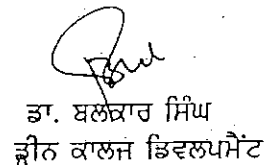 ਡਾ. ਬਲਕਾਰ ਸਿੰਘ
ਡੀਨ ਕਾਲਜ ਡਿਵਲਪਮੈਂਟ